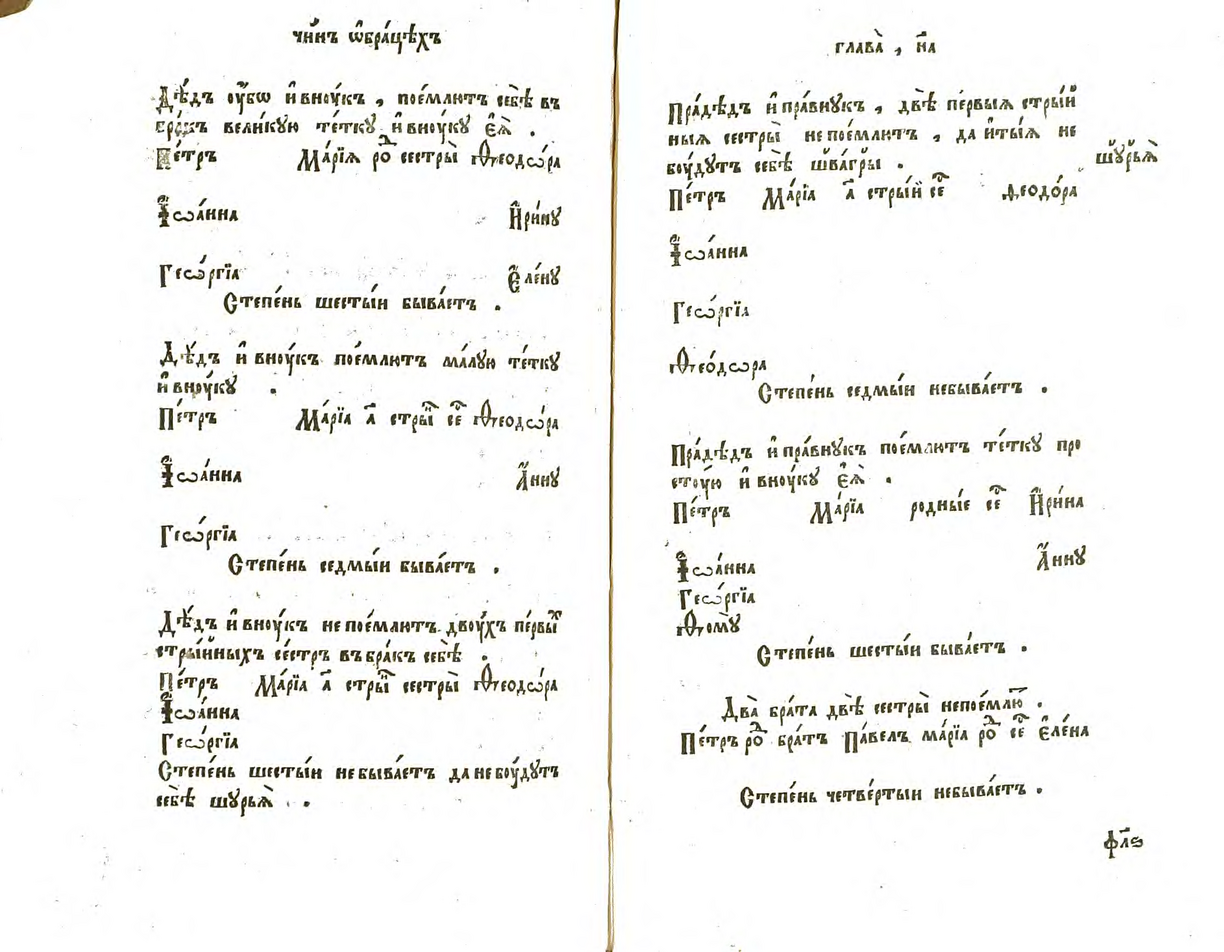 чи́нъ ѡ҆бра́цѣхъ
Дѣ́дъ ᲂу҆́бѡ и҆внꙋ́къ , пое́млютъ себѣ̀ въ
бра́къ вели́кую те́ткꙋ и҆внꙋ́кꙋ є҆ѧ̀ .
Пе́тръ Марі́ѧ роⷣ сестры̀ Ѳеодѡ́ра
І҆ѡа́нна И҆ри́нꙋ
Геѡ́ргїа Є҆ле́нꙋ
Степе́нь шесты́и быва́етъ .
Дѣ́дъ и҆ внꙋ́къ пое́млютъ ма́лую те́ткꙋ
и҆ внꙋ́кꙋ .
Пе́тръ Марі́а а҃ стрыⷤ сеⷭ Ѳеодѡ́ра
І҆ѡа́нна А҆́ннꙋ
Геѡ́ргїа
Степе́нь седмы́и быва́етъ .
Дѣ́дъ и҆ внꙋ́къ не пое́млютъ двоу́хъ пе́рвыⷯ
стры́йныхъ се́стръ въ бра́къ себѣ̀ .
Пе́тръ Марі́а а҃ стрыⷤ сестры̀ Ѳеодѡ́ра
І҆ѡа́нна
Геѡ́ргїа
Степе́нь шесты́и небыва́етъ да небꙋ́дꙋтъ
себѣ̀ шꙋрьѧ̀ .
глава̀ , н҃а
Пра́дѣдъ и҆ пра́внꙋкъ , двѣ̀ пе́рвыѧ стры́й
ныѧ сестры̀ непое́млютъ , да и҆ты́ѧ не
бꙋ́дꙋтъ себѣ̀ шва́гры . шꙋ́рьѧ̀
Пе́тръ Марі́а а҃ стры́й сеⷭ Ѳеодо́ра
І҆ѡа́нна
Геѡ́ргїа
Ѳео́дѡра
Степе́нь седмы́и небыва́етъ .
Пра́дѣдъ и҆ пра́внꙋкъ пое́млютъ те́ткꙋ про
стꙋ́ю и҆ внꙋ́кꙋ є҆ѧ̀ .
Пе́тръ Марі́а родны́е сеⷭ И҆ри́на
І҆ѡа́нна А҆́ннꙋ
Геѡ́ргїа
Ѳомꙋ̀
Степе́нь шесты́и быва́етъ .
Два̀ бра́та двѣ̀ сестры̀ непое́млюⷮ .
Пе́тръ роⷣ бра́тъ Па́велъ марі́а роⷣ сеⷭ Є҆ле́на
Степе́нь четве́ртыи небыва́етъ .
фл҃ѕ